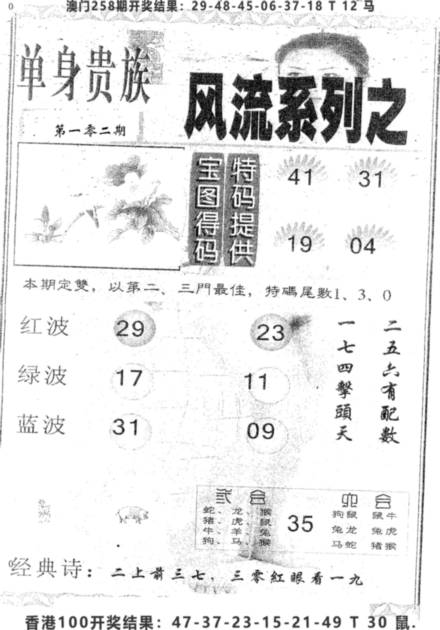 0
澳门258期开奖结果：29-48-45-06-37-18 T 12 马
单身贵族
第一零二期
风流系列之
宝图得码
特码提供
41 31
19 04
本期定雙，以第二、三門最佳，特碼尾數1、3、0
红波 29 23
绿波 17 11
蓝波 31 09
二五六有配數
一七四擊頭天
貳合
蛇、龙、猴
猪、虎、鼠
牛、羊、兔
狗、马、猴
35
六合
狗鼠 鼠牛
兔龙 兔虎
马蛇 猪猴
经典诗：二上前三七，三零紅眼看一九
香港100开奖结果：47-37-23-15-21-49 T 30 鼠.